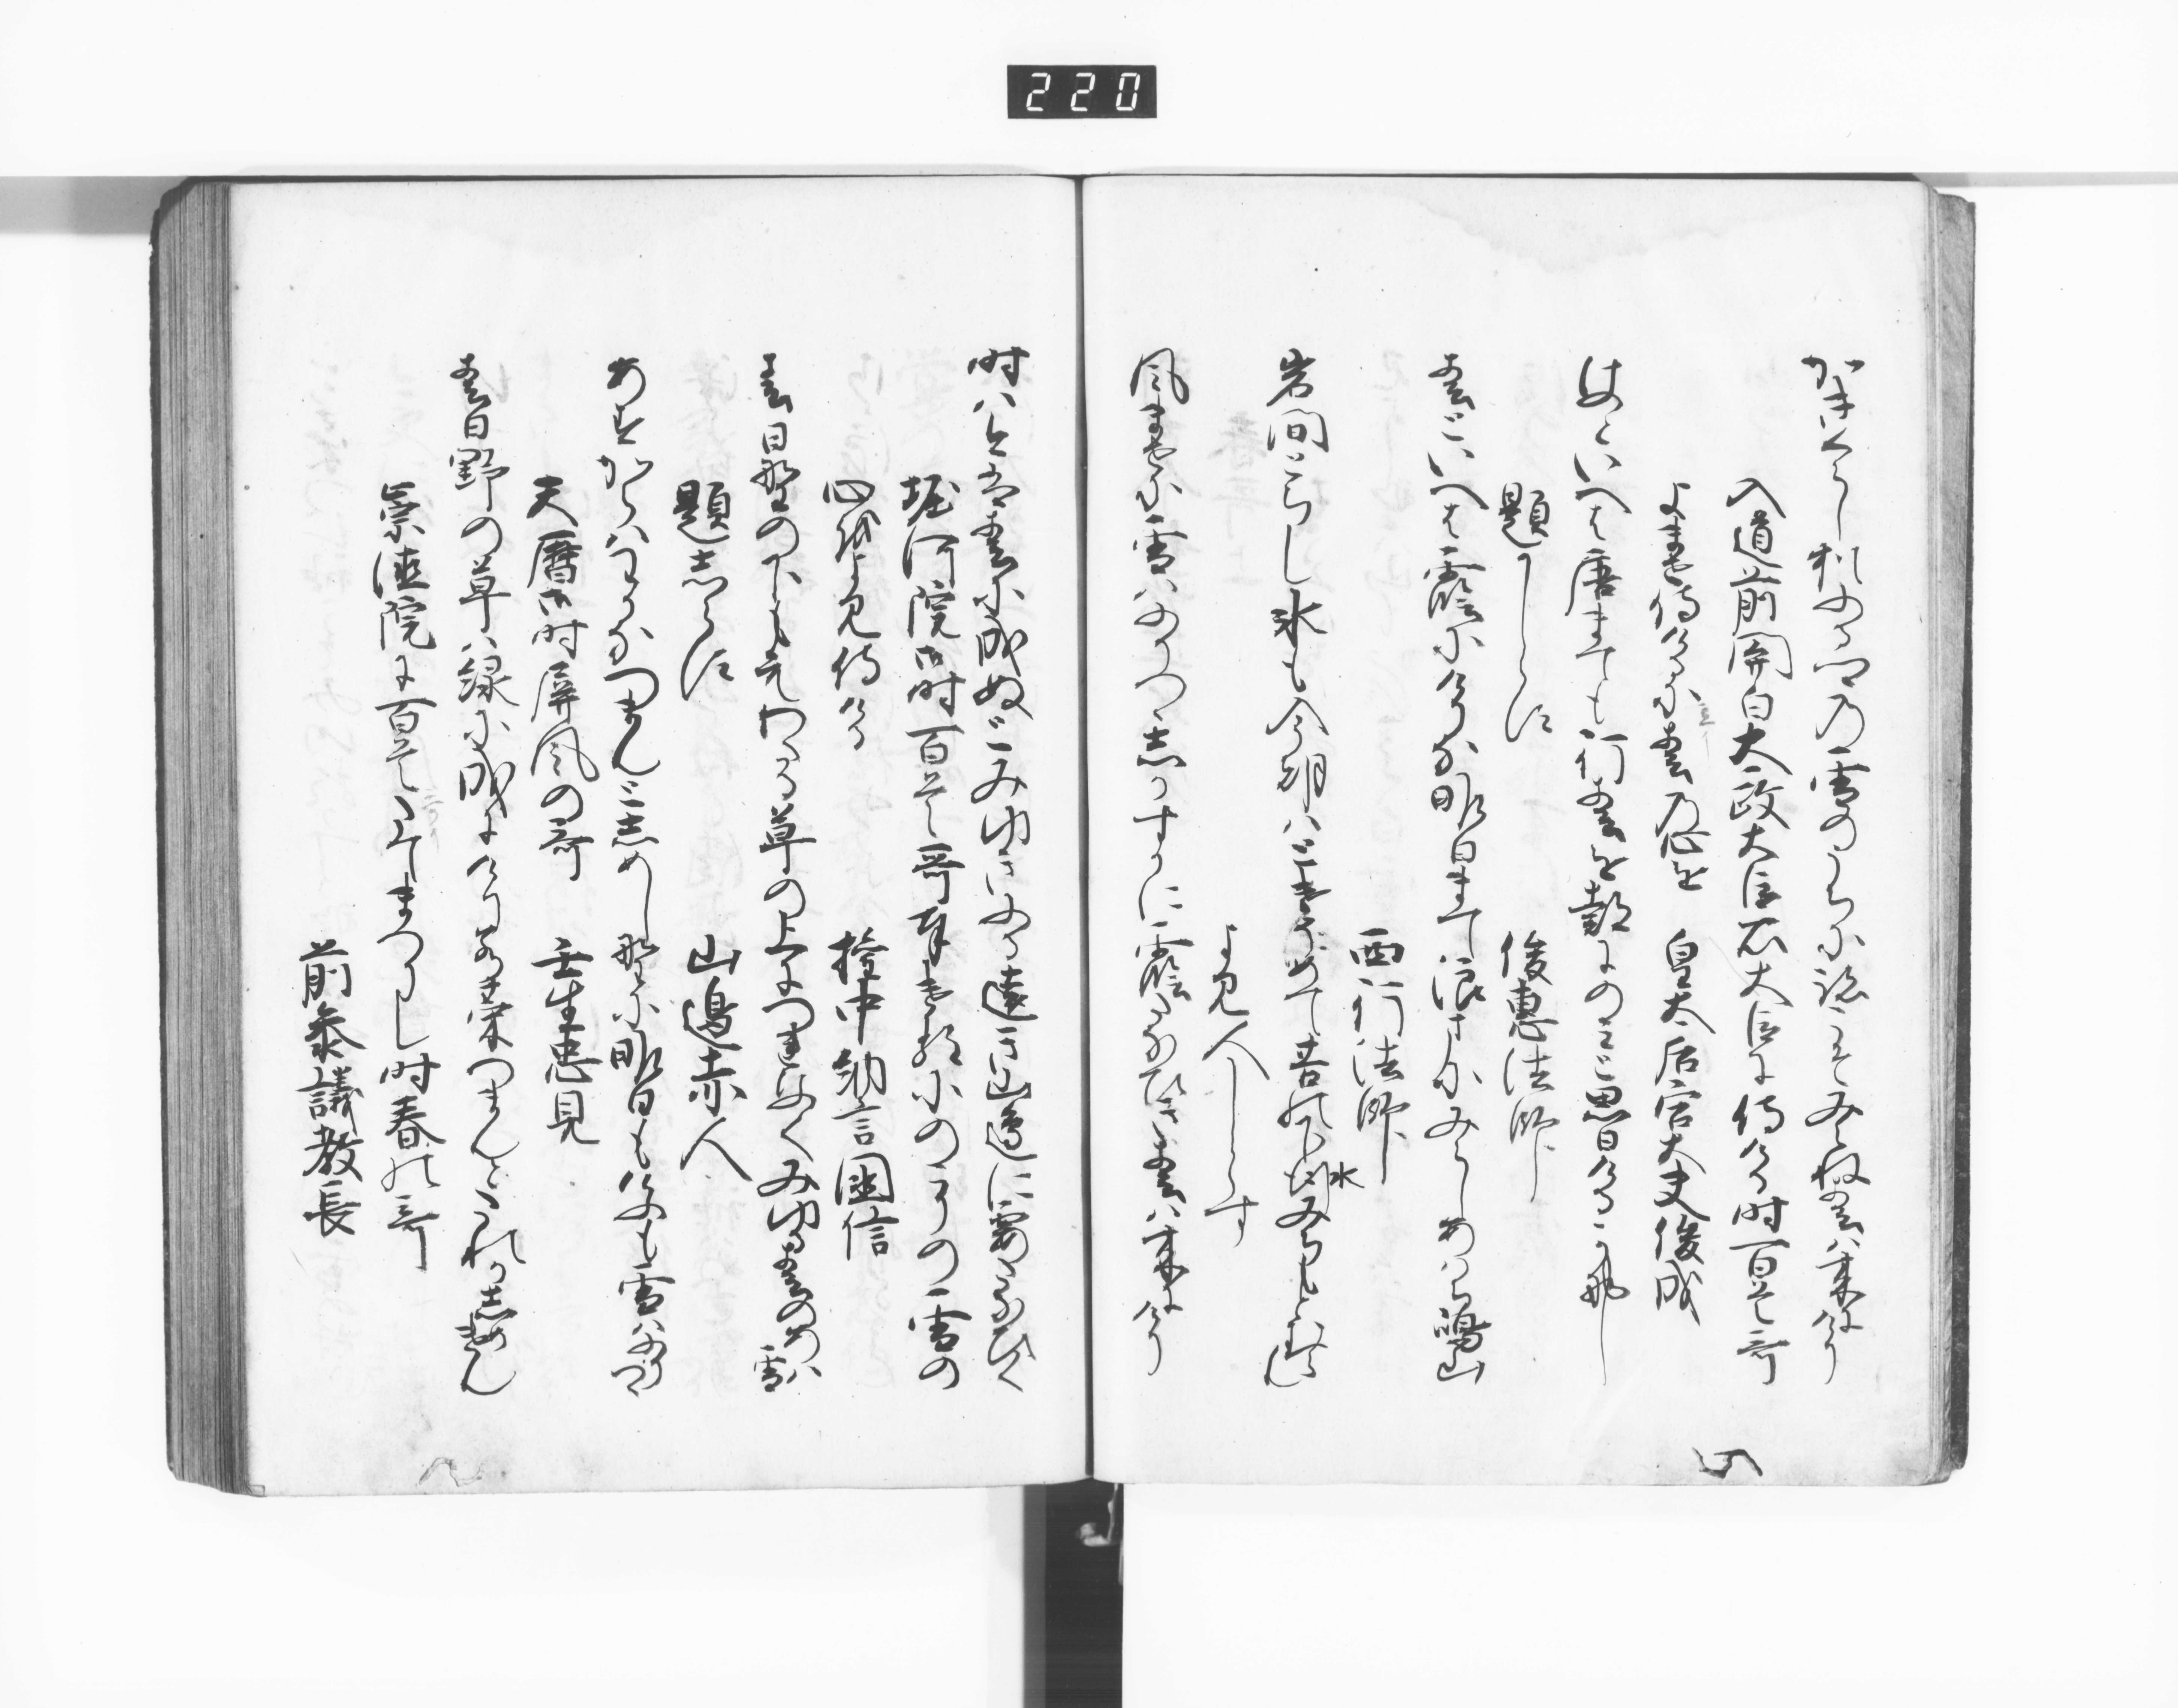 220
かきくらし猶ふる里の雪のうちに跡こそみえね春は来にけり
入道前関白太政大臣右大臣に侍ける時百首哥
よませ侍けるに春の心を　皇太后宮大夫俊成
けふといへは唐まても行春を都にのみと思ひけるかな
題しらす　俊惠法師
春といへは霞にけりな昨日まて浪まにみえしあはち嶋山
西行法師
岩間とちし氷も今朝はとけそめて苔の下水みちもとむ也
よみ人しらす
風ませに雪はふりつゝしかすかに霞たなひき春は来にけり
時は今は春に成ぬとみゆきふる遠き山邊に霞たなひく
堀河院御時百首哥奉けるにのこりの雪の
心をよみ侍ける　権中納言國信
春日野の下もえわたる草の上につれなくみゆる春のあは雪
題しらす　山邊赤人
あすからはわかなつまんとしめし野に昨日もけふも雪はふりつゝ
天暦御時屏風の哥　壬生忠見
春日野の草は緑に成にけりわか菜つまんとたれかしめけん
崇徳院に百首たてまつりし時春の哥
前参議教長